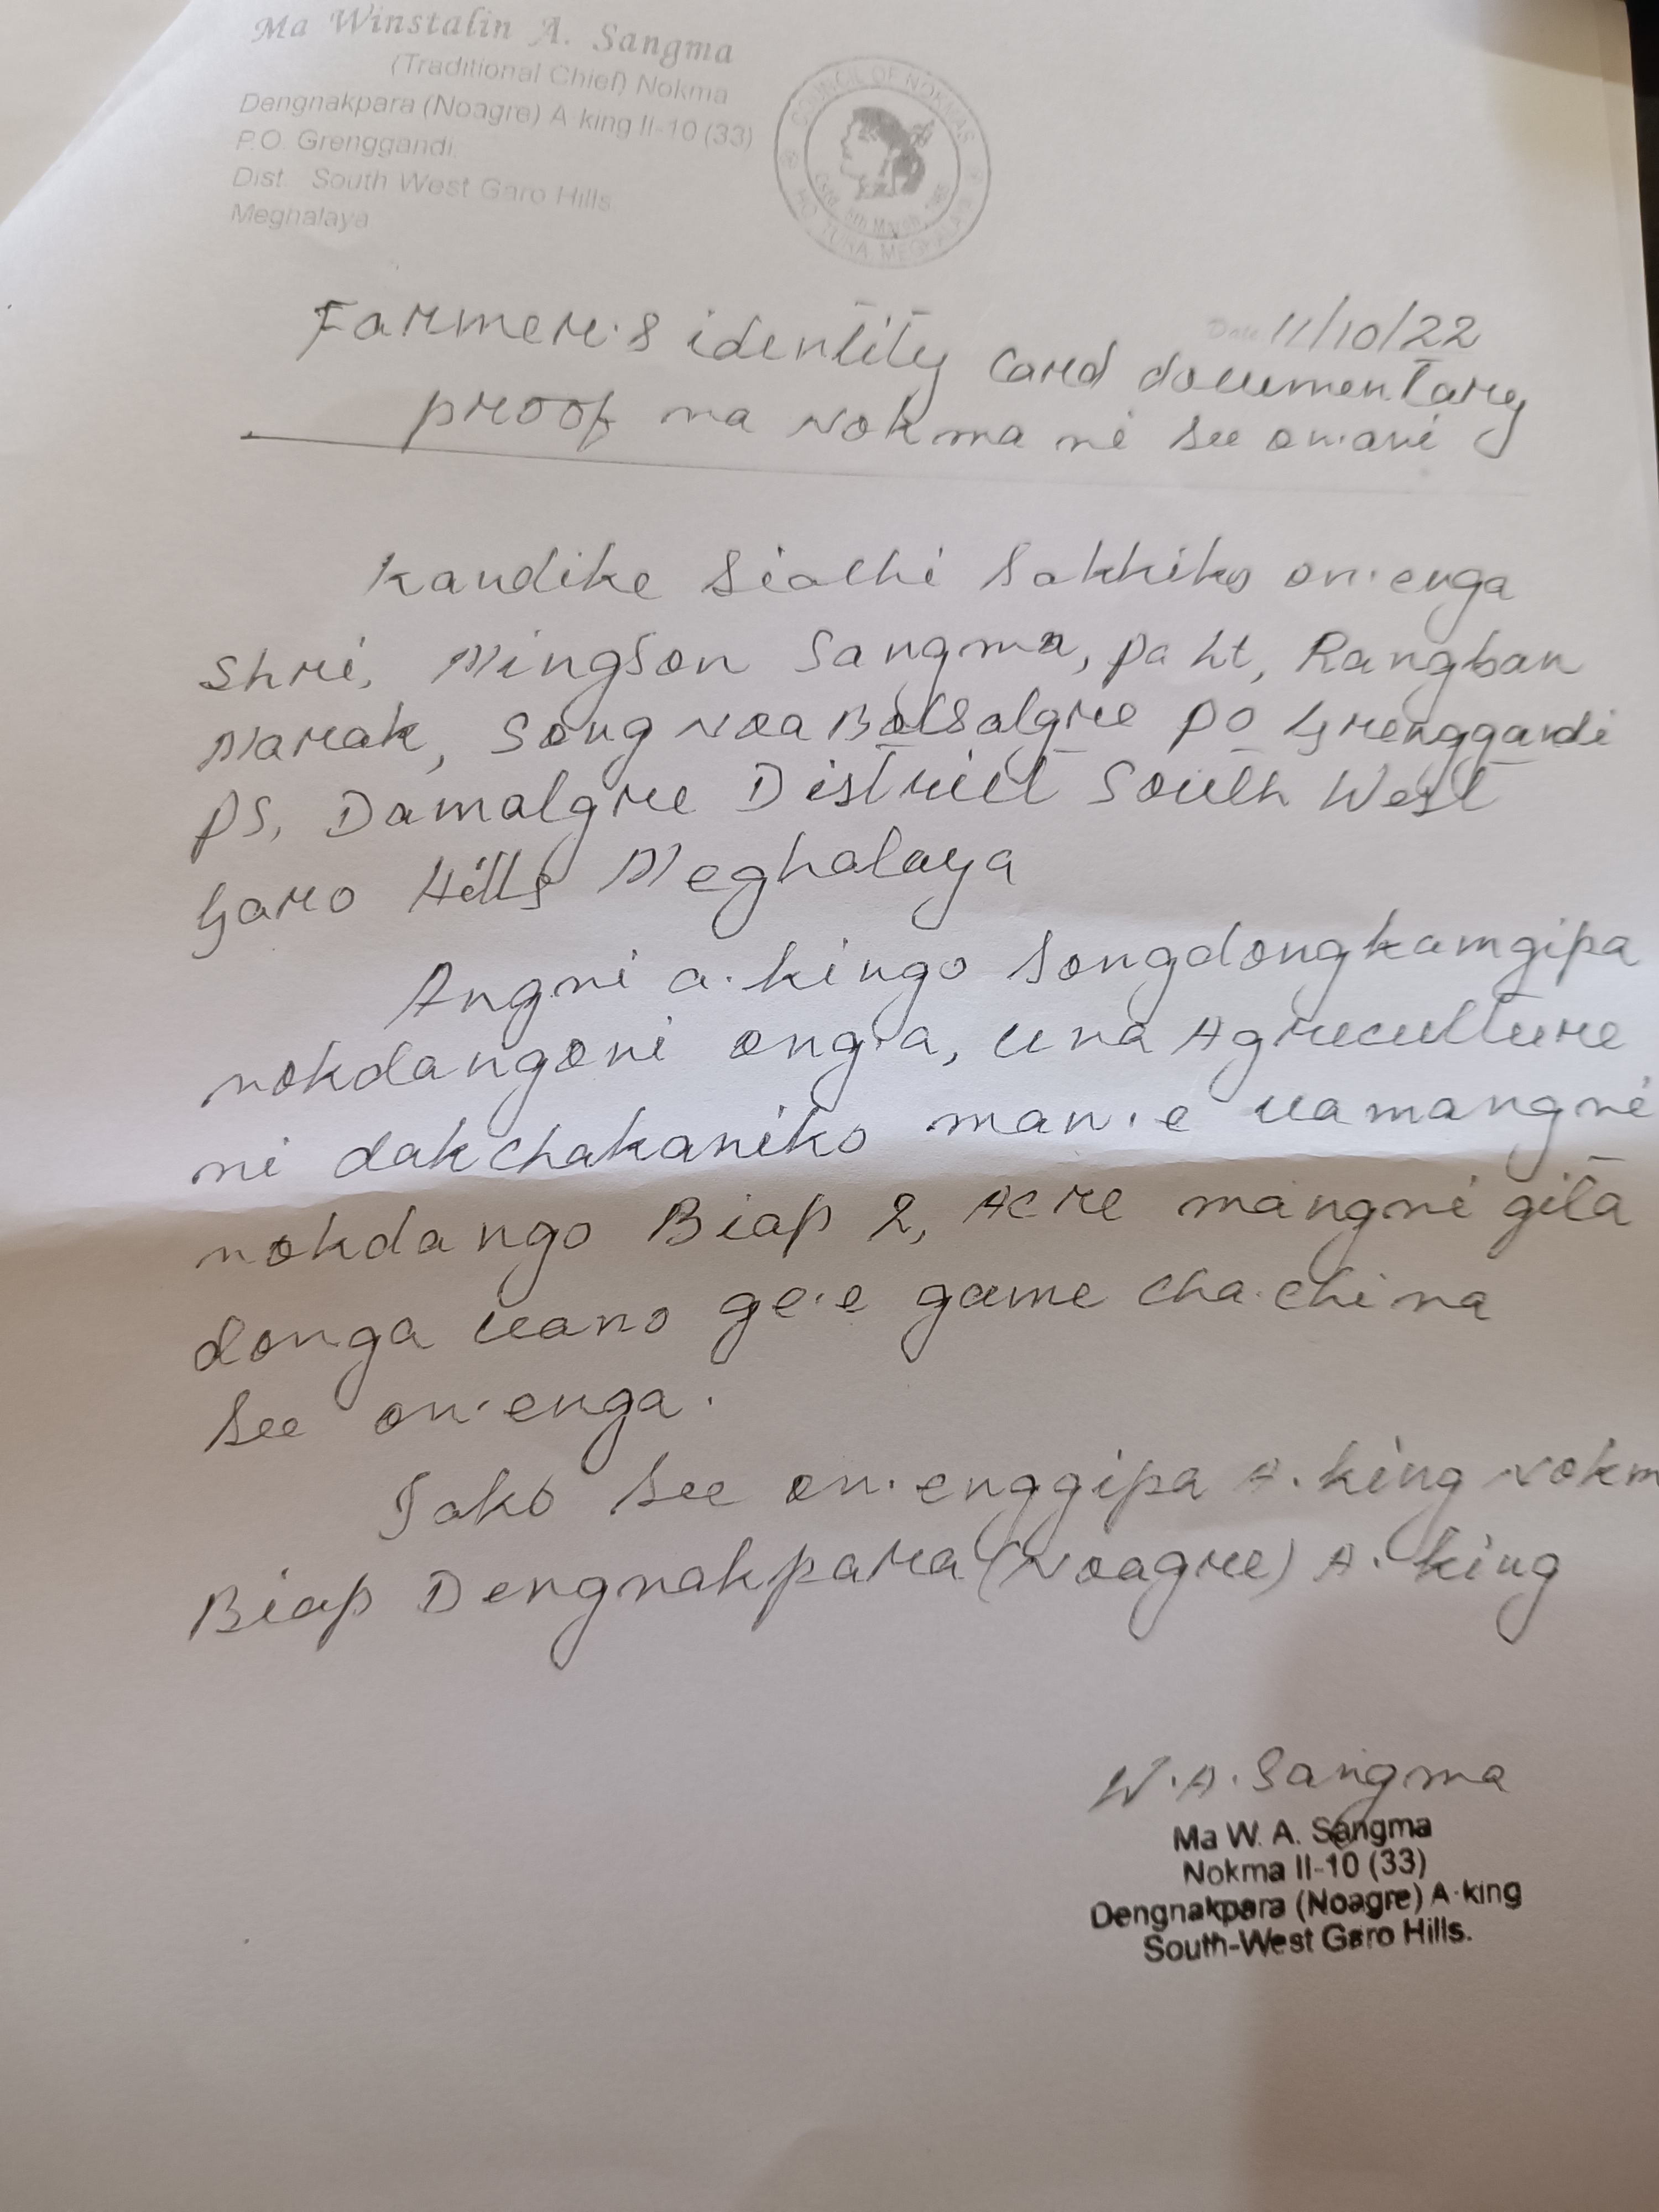 Ma Winstalin A. Sangma
(Traditional Chief) Nokma
Dengnakpara (Noagre) A·king II-10 (33)
P.O. Grenggandi
Dist. South West Garo Hills
Meghalaya
COUNCIL OF NOKMAS
HO. TURA, MEGHALAYA
Date 11/10/22
Farmer·s identity Card documentary
proof na Nokma ni see on·ani
Kandike Siachi Sakkiko on·enga
Shri, Mingson Sangma, pa Lt, Rangban
Marak, Song Noa Bolsalgre PO Grenggandi
PS, Damalgre District South West
Garo Hills Meghalaya
Angni a·kingo Songdongkamgipa
nokdangoni ong·a, una Agreculture
ni dakchakaniko man·e uamangni
nokdango Biap 2, Acre mangmi gita
donga uano ge·e game cha·china
See on·enga.
Iako See on·enggipa A·king Nokm
Biap Dengnakpara (Noagre) A·king
W.A. Sangma
Ma W. A. Sangma
Nokma II-10 (33)
Dengnakpara (Noagre) A·king
South-West Garo Hills.